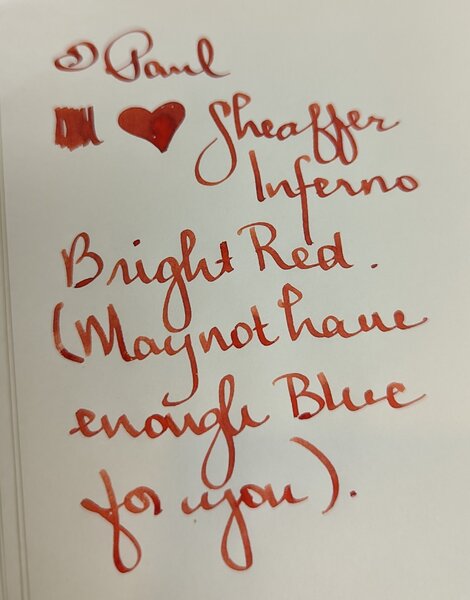 @Paul
Sheaffer
Inferno
Bright Red.
(May not have
enough Blue
for you).